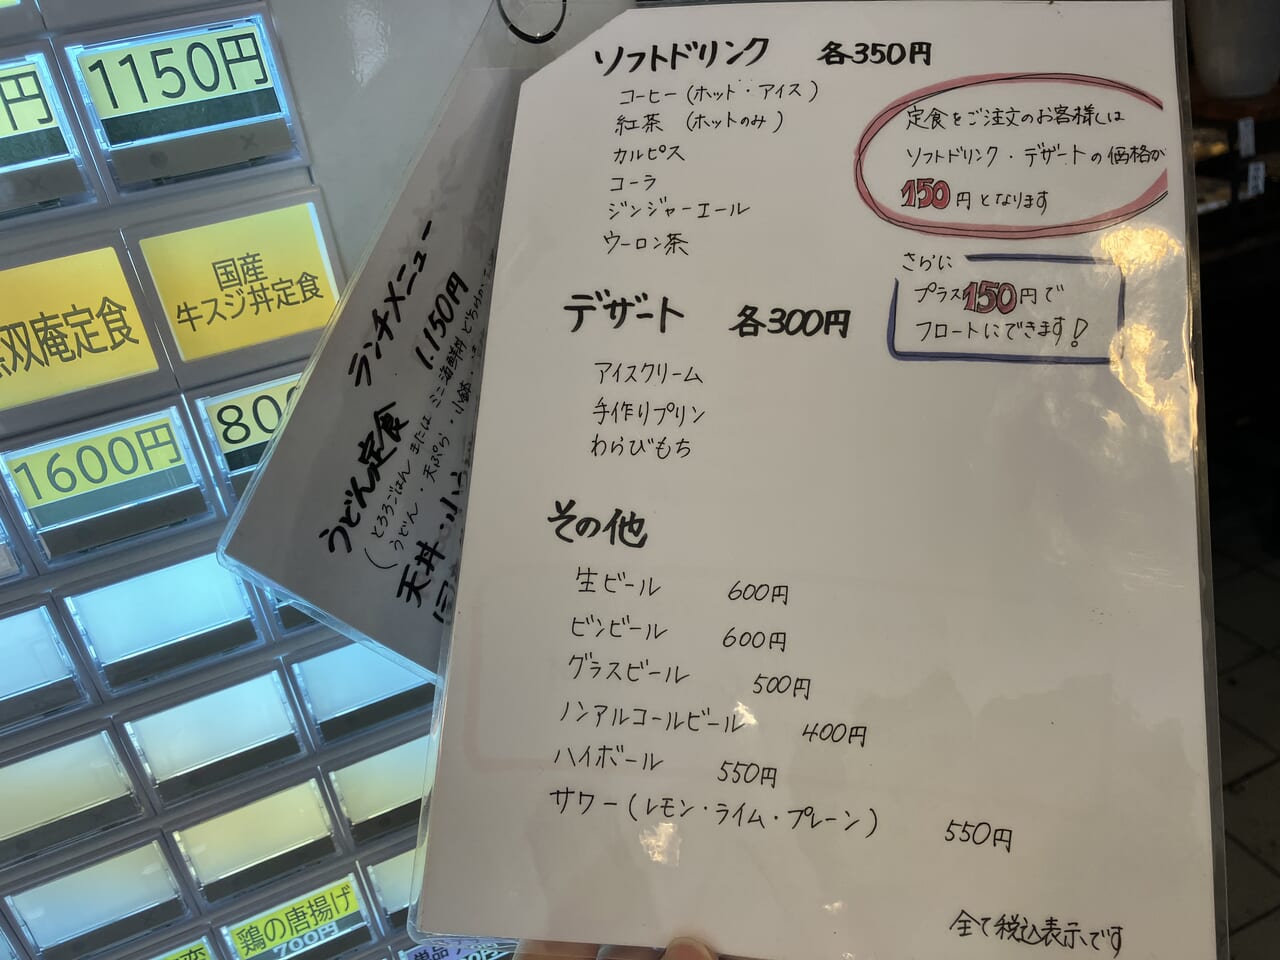 ソフトドリンク 各350円
コーヒー(ホット・アイス)
紅茶 (ホットのみ)
カルピス
コーラ
ジンジャーエール
ウーロン茶
定食をご注文のお客様しは
ソフトドリンク・デザートの価格が
150円となります
さらに
プラス150円で
フロートにできます!
デザート 各300円
アイスクリーム
手作りプリン
わらびもち
その他
生ビール 600円
ビンビール 600円
グラスビール 500円
ノンアルコールビール 400円
ハイボール 550円
サワー(レモン・ライム・プレーン) 550円
全て税込表示です
ランチメニュー
うどん定食 1.150円
(とろろごはん または ミニ海鮮丼 どちらか
うどん・天ぷら・小鉢・
天丼・小
1150円
円
国産
牛スジ丼定食
双庵定食
1600円
800
鶏の唐揚げ
700円
単品